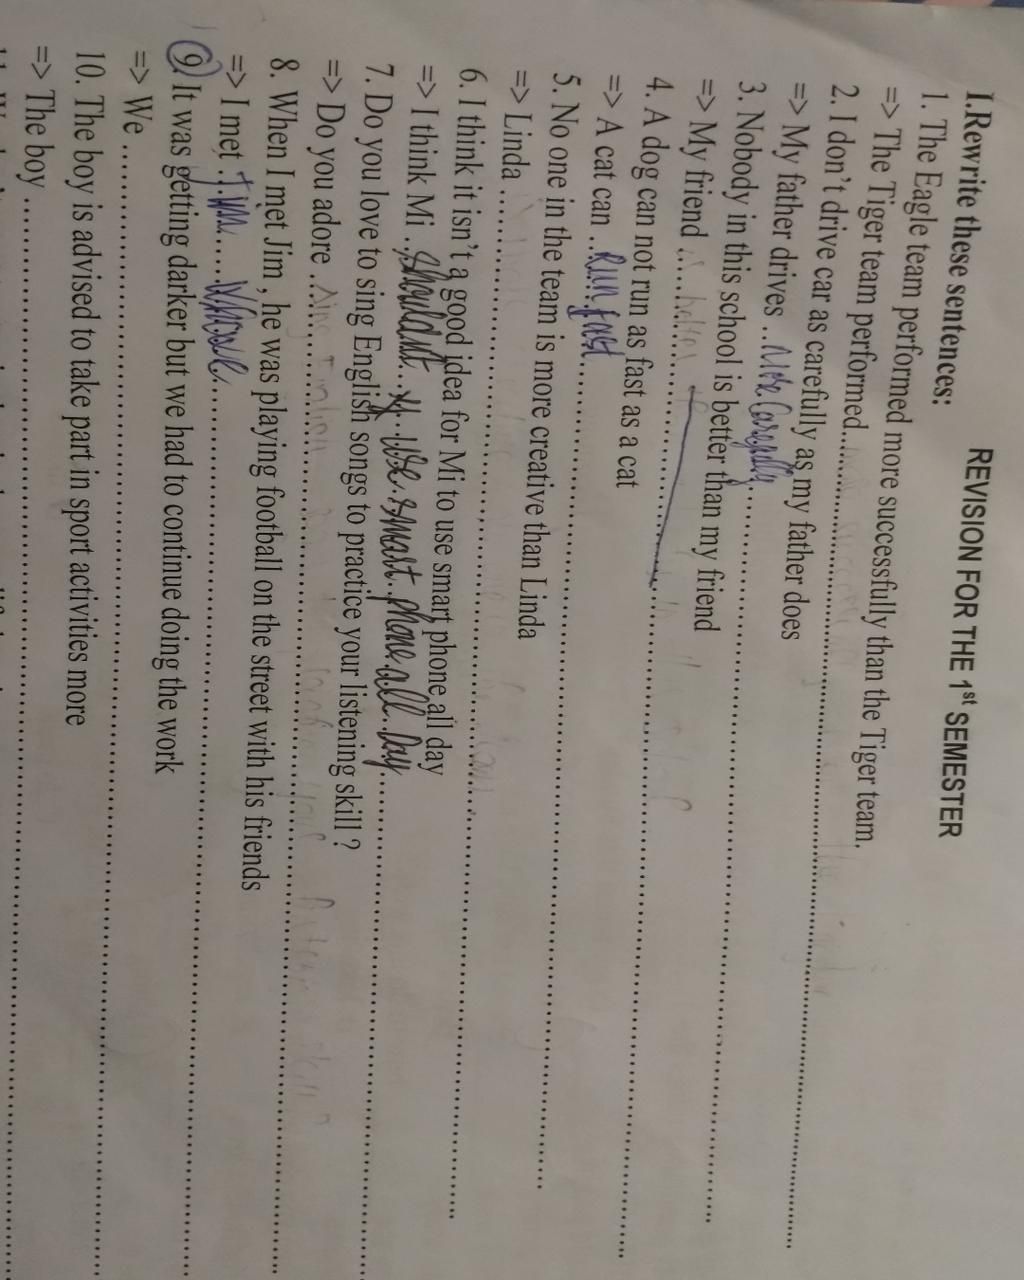 REVISION FOR THE 1st SEMESTER
I.Rewrite these sentences:
1. The Eagle team performed more successfully than the Tiger team.
=> The Tiger team performed..................
2. I don't drive car as carefully as my father does
=> My father drives .. More Carefully ..................
3. Nobody in this school is better than my friend
=> My friend ..................
4. A dog can not run as fast as a cat
=> A cat can .. Run fast ..................
5. No one in the team is more creative than Linda
=> Linda ..................
6. I think it isn't a good idea for Mi to use smart phone all day
=> I think Mi .. shouldnt use smart phone all day ..................
7. Do you love to sing English songs to practice your listening skill ?
=> Do you adore ..................
8. When I met Jim , he was playing football on the street with his friends
=> I met ..................
9. It was getting darker but we had to continue doing the work
=> We ..................
10. The boy is advised to take part in sport activities more
=> The boy ..................